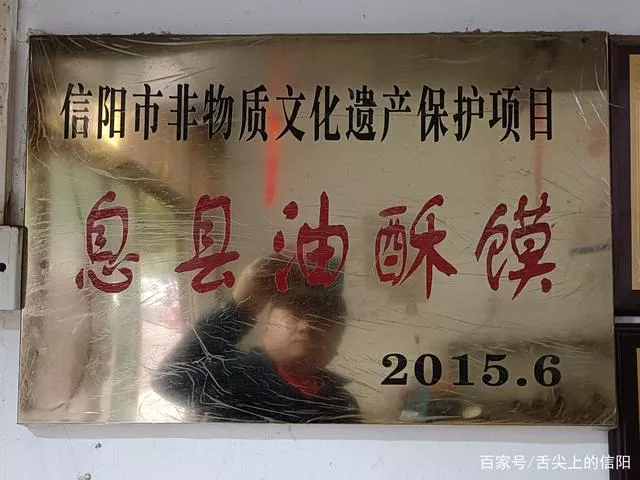 信阳市非物质文化遗产保护项目
息县油酥馍
2015.6
百家号/舌尖上的信阳